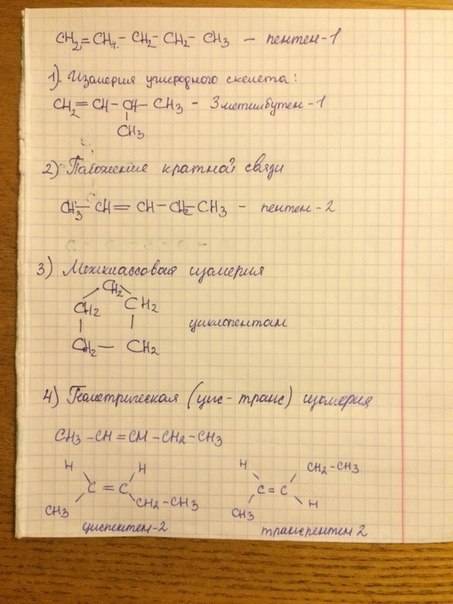 CH2=CH2-CH2-CH2-CH3 - пентен-1
1). Изомерия углеродного скелета:
CH2=CH-CH-CH3 - 3 метилбутен-1
CH3
2) Положение кратной связи
CH3-CH=CH-CH2-CH3 - пентен-2
3) Межклассовая изомерия
CH2
CH2 CH2
циклопентан
CH2-CH2
4) Геометрическая (цис-транс) изомерия
CH3-CH=CH-CH2-CH3
H H H CH2-CH3
C=C C=C
CH3 CH2-CH3 CH3 H
циспентен-2 транспентен 2